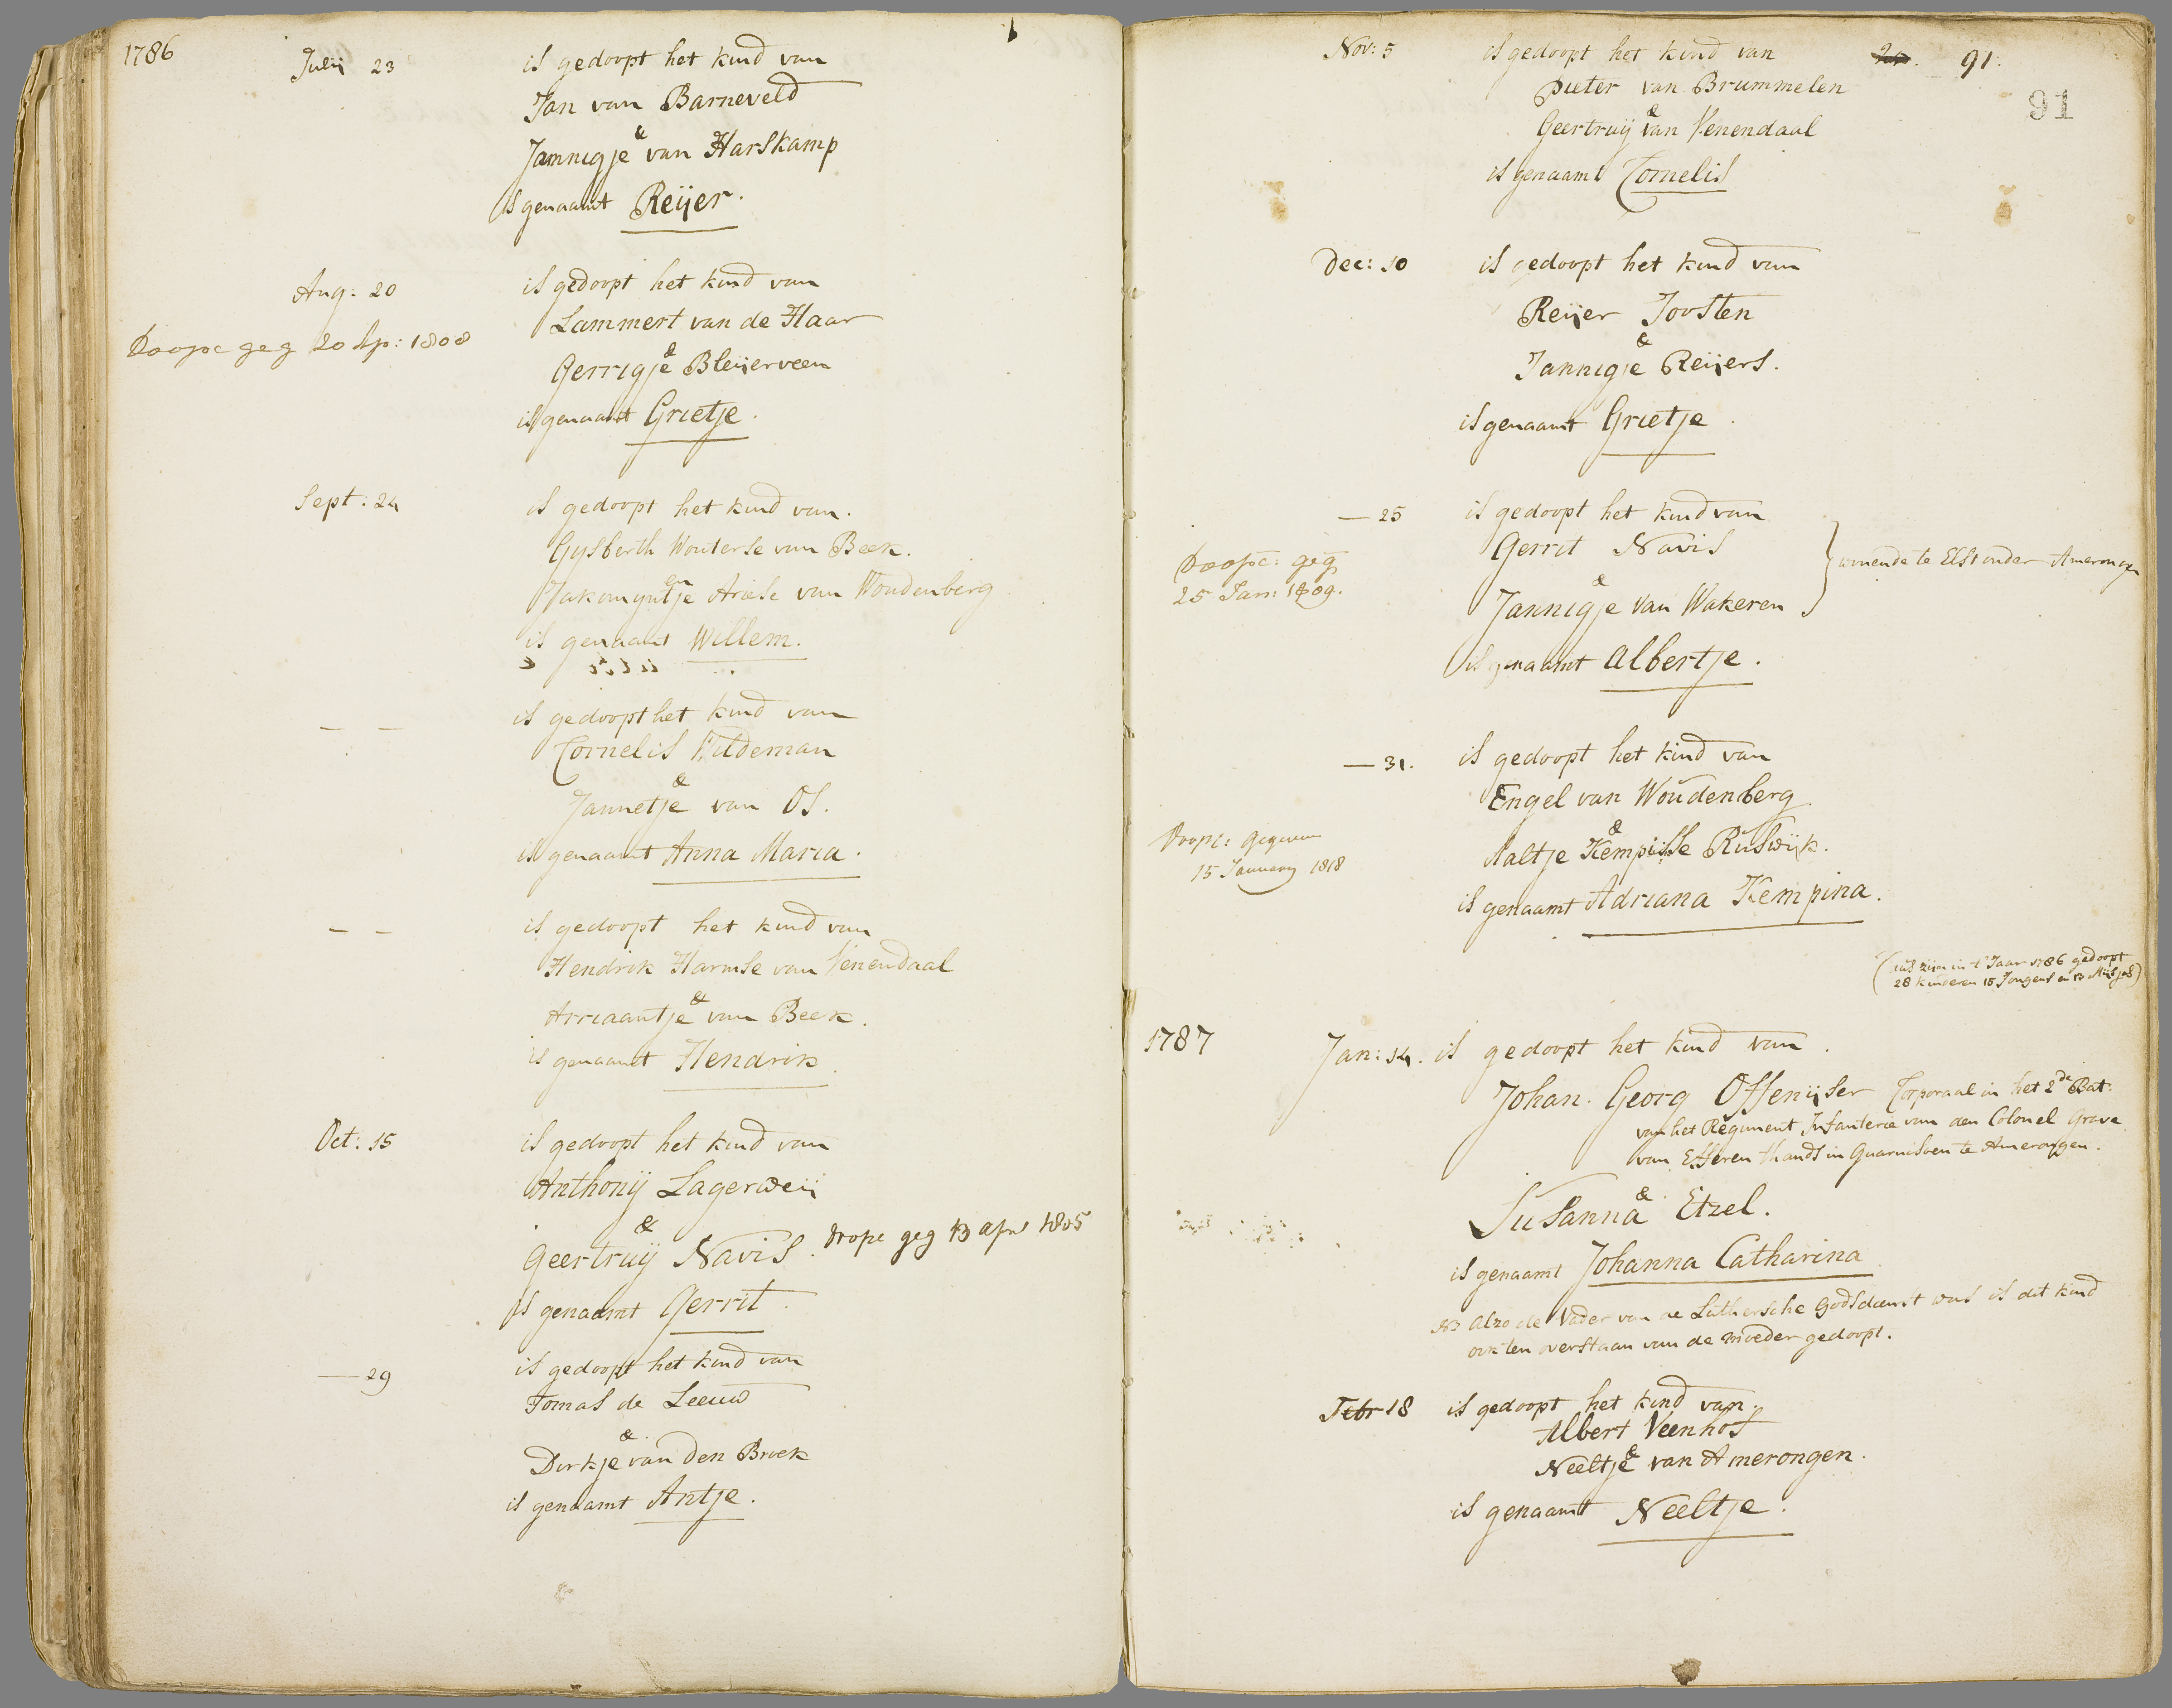 1786
Julij 23 is gedoopt het kind van
Jan van Barneveld
&
Jannigje van Harskamp
is genaamt Reijer.
Aug: 20 is gedoopt het kind van
Doopc geg 20 Ap: 1808
Lammert van de Haar
&
Gerrigje Bleijerveen
is genaamt Grietje.
Sept: 24 is gedoopt het kind van.
Gijsberth Wouterse van Beek.
en
Jakomijntje Ariese van Woudenberg
is genaamt Willem.
— — is gedoopt het kind van
Cornelis Wildeman
&
Jannetje van Os.
is genaamt Anna Maria.
— — is gedoopt het kind van
Hendrik Harmse van Venendaal
&
Arriaantje van Beek.
is genaamt Hendrik.
Oct: 15 is gedoopt het kind van
Anthonij Lagerweij
&
Geertruij Navis. dope geg 13 apr 1805
is genaamt Gerrit.
— 29 is gedoopt het kind van
Tomas de Leeuw
&
Dirkje van den Broek
is genaamt Antje.
91.
91
Nov: 5 is gedoopt het kind van
Pieter van Brummelen
&
Geertruij van Venendaal
is genaamt Cornelis
Dec: 10 is gedoopt het kind van
Reijer Joosten
&
Jannigje Reijers.
is genaamt Grietje.
— 25 is gedoopt het kind van
Doopc: geg
25 Jan: 1809.
Gerrit Navis
&
Jannigje van Wakeren
wonende te Elst onder Amerongen
is genaamt Albertje.
— 31. is gedoopt het kind van
Engel van Woudenberg
&
Doopc: gegeven
15 January 1818
Aaltje Kempisse Ruswijk.
is genaamt Adriana Kempina.
(dus zijn in 't Jaar 1786 gedoopt
28 kinderen 15 Jongens en 13 Meisjes)
1787
Jan: 14. is gedoopt het kind van.
Johan. Georg Offenijser Corporaal in het 2de Bat:
van het Regiment Infanterie van den Colonel Grave
van Efferen thands in Guarnisoen te Amerongen.
&
Susanna Etzel.
is genaamt Johanna Catharina
NB Alzo de Vader van de Luthersche Godsdienst was is dit kind
ook ten overstaan van de moeder gedoopt.
Febr 18 is gedoopt het kind van.
Albert Veenhof
&
Neeltje van Amerongen.
is genaamt Neeltje.